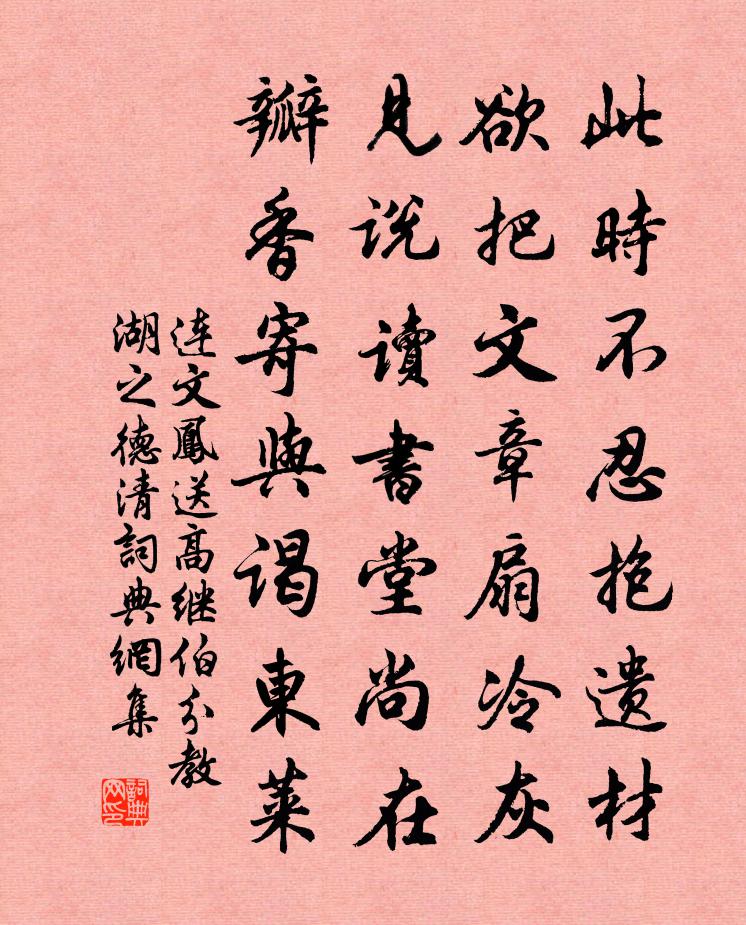 此時不忍抱遗材
欲把文章扇冷灰
見说讀書堂尚在
瓣香寄與谒東莱
连文鳳送高继伯分教
湖之德清詞典網集
詞典网印